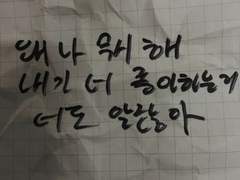 왜 나 무시 해
내가 너 좋아하는거
너도 알잖아